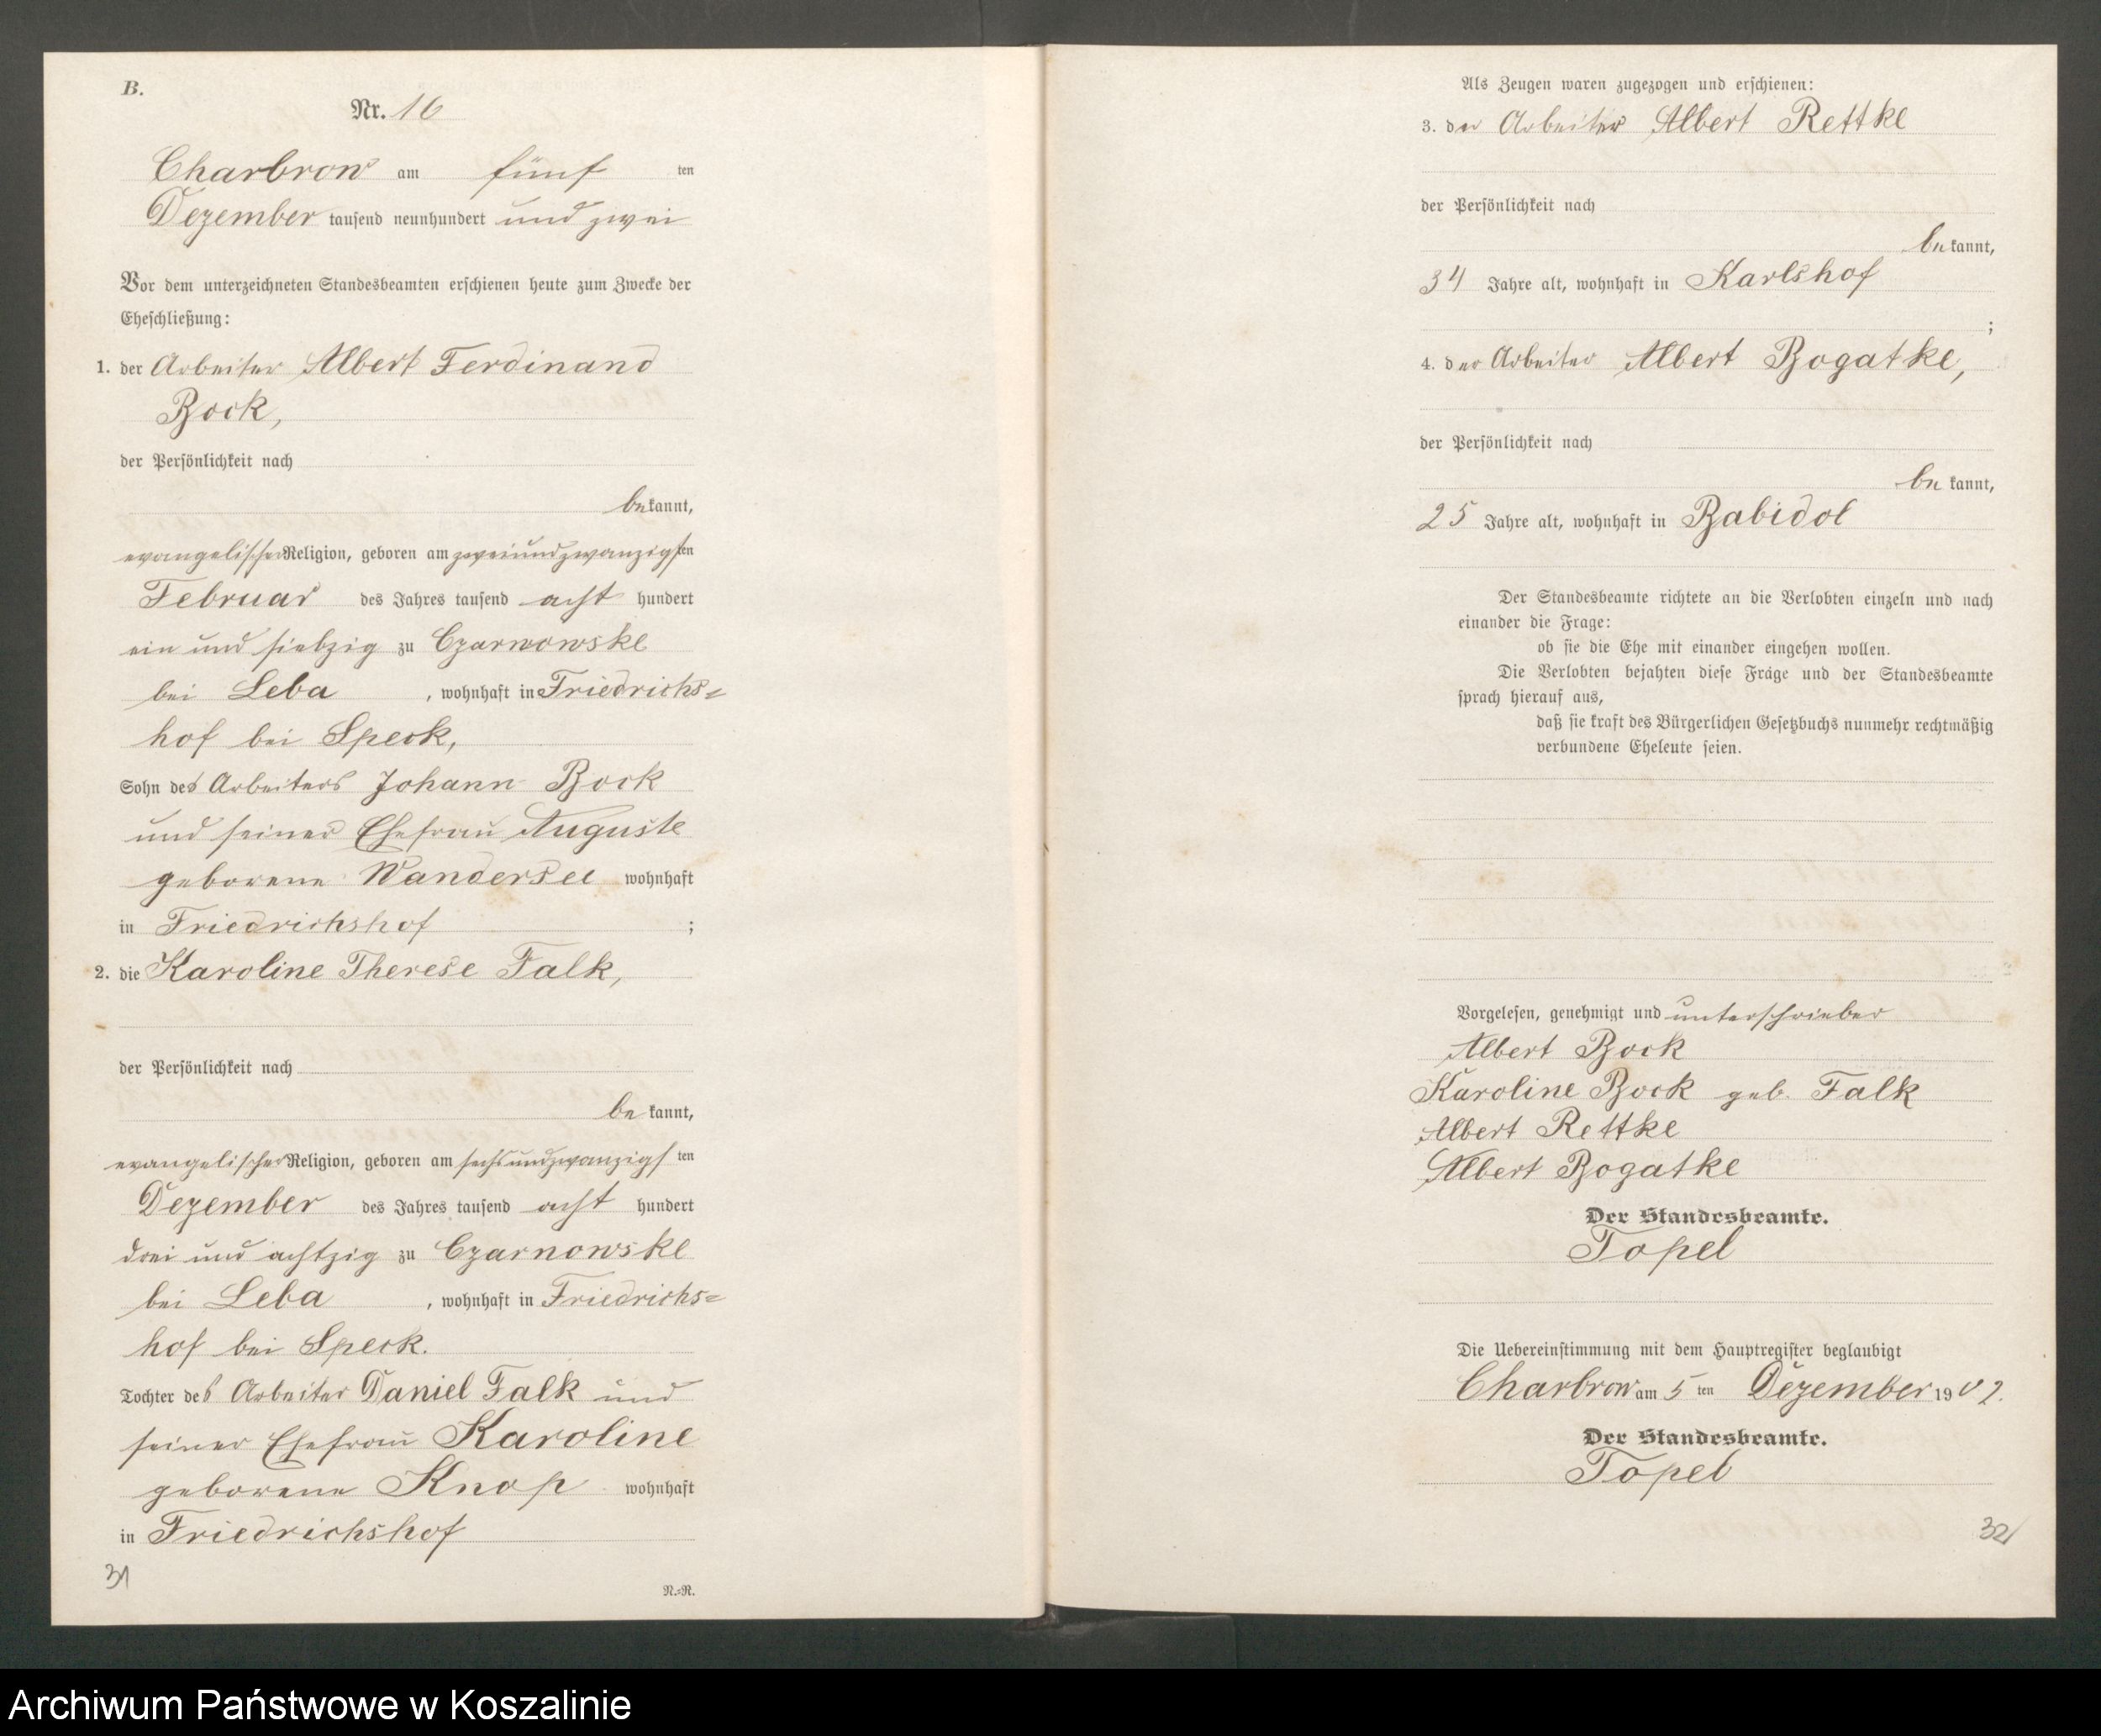 B.
Nr. 16
Charbrow am fünf ten
Dezember tausend neunhundert und zwei
Vor dem unterzeichneten Standesbeamten erschienen heute zum Zwecke der
Eheschließung:
1. der Arbeiter Albert Ferdinand
Bock,
der Persönlichkeit nach
bekannt,
evangelischer Religion, geboren am zweiundzwanzigsten
Februar des Jahres tausend acht hundert
ein und siebzig zu Czarnowske
bei Leba , wohnhaft in Friedrichs=
hof bei Speck,
Sohn des Arbeiters Johann Bock
und seiner Ehefrau Auguste
geborene Wandersee wohnhaft
in Friedrichshof ;
2. die Karoline Therese Falk,
der Persönlichkeit nach
be kannt,
evangelischer Religion, geboren am sechsundzwanzigs ten
Dezember des Jahres tausend acht hundert
drei und achtzig zu Czarnowske
bei Leba , wohnhaft in Friedrichs=
hof bei Speck.
Tochter des Arbeiter Daniel Falk und
seiner Ehefrau Karoline
geborene Knop wohnhaft
in Friedrichshof
31
N.=N.
Als Zeugen waren zugezogen und erschienen:
3. der Arbeiter Albert Rettke
der Persönlichkeit nach
be kannt,
34 Jahre alt, wohnhaft in Karlshof
;
4. der Arbeiter Albert Bogatke,
der Persönlichkeit nach
be kannt,
25 Jahre alt, wohnhaft in Babidol
Der Standesbeamte richtete an die Verlobten einzeln und nach
einander die Frage:
ob sie die Ehe mit einander eingehen wollen.
Die Verlobten bejahten diese Frage und der Standesbeamte
sprach hierauf aus,
daß sie kraft des Bürgerlichen Gesetzbuchs nunmehr rechtmäßig
verbundene Eheleute seien.
Vorgelesen, genehmigt und unterschrieben
Albert Bock
Karoline Bock geb. Falk
Albert Rettke
Albert Bogatke
Der Standesbeamte.
Topel
Die Uebereinstimmung mit dem Hauptregister beglaubigt
Charbrow am 5 ten Dezember 1902.
Der Standesbeamte.
Topel
32
Archiwum Państwowe w Koszalinie